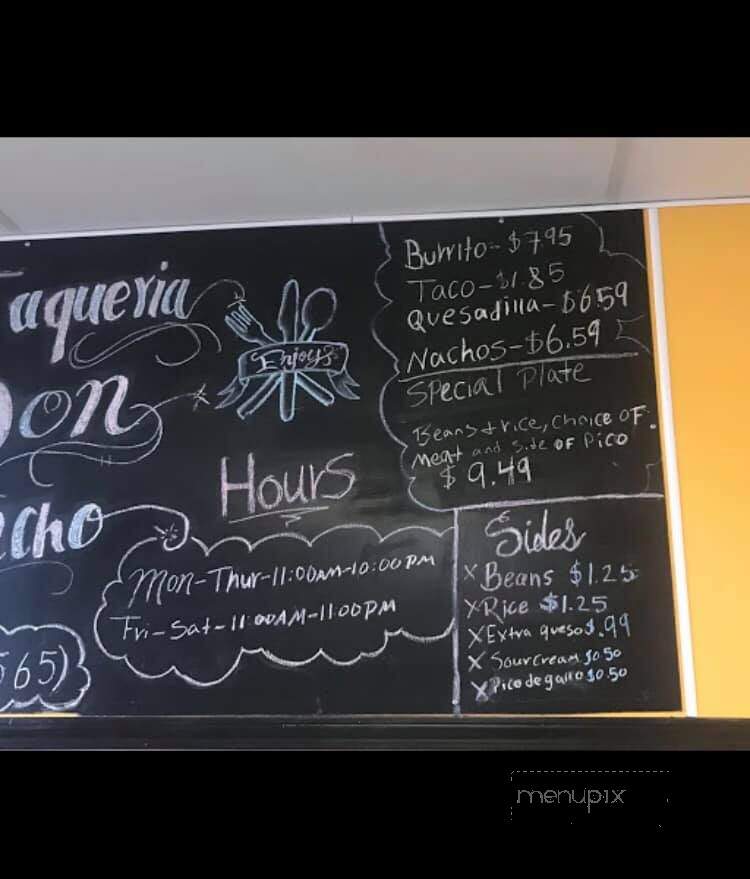 aqueria
on
cho
565)
Enjoy
Hours
Mon-Thur-11:00AM-10:00PM
Fri-Sat-11:00AM-11:00PM
Burrito-$7.95
Taco-$1.85
Quesadilla-$6.59
Nachos-$6.59
Special Plate
Beans & rice, choice of
meat and side of Pico
$ 9.49
Sides
x Beans $1.25
x Rice $1.25
x Extra queso $.99
x Sour cream $0.50
x Pico de gallo $0.50
menupix